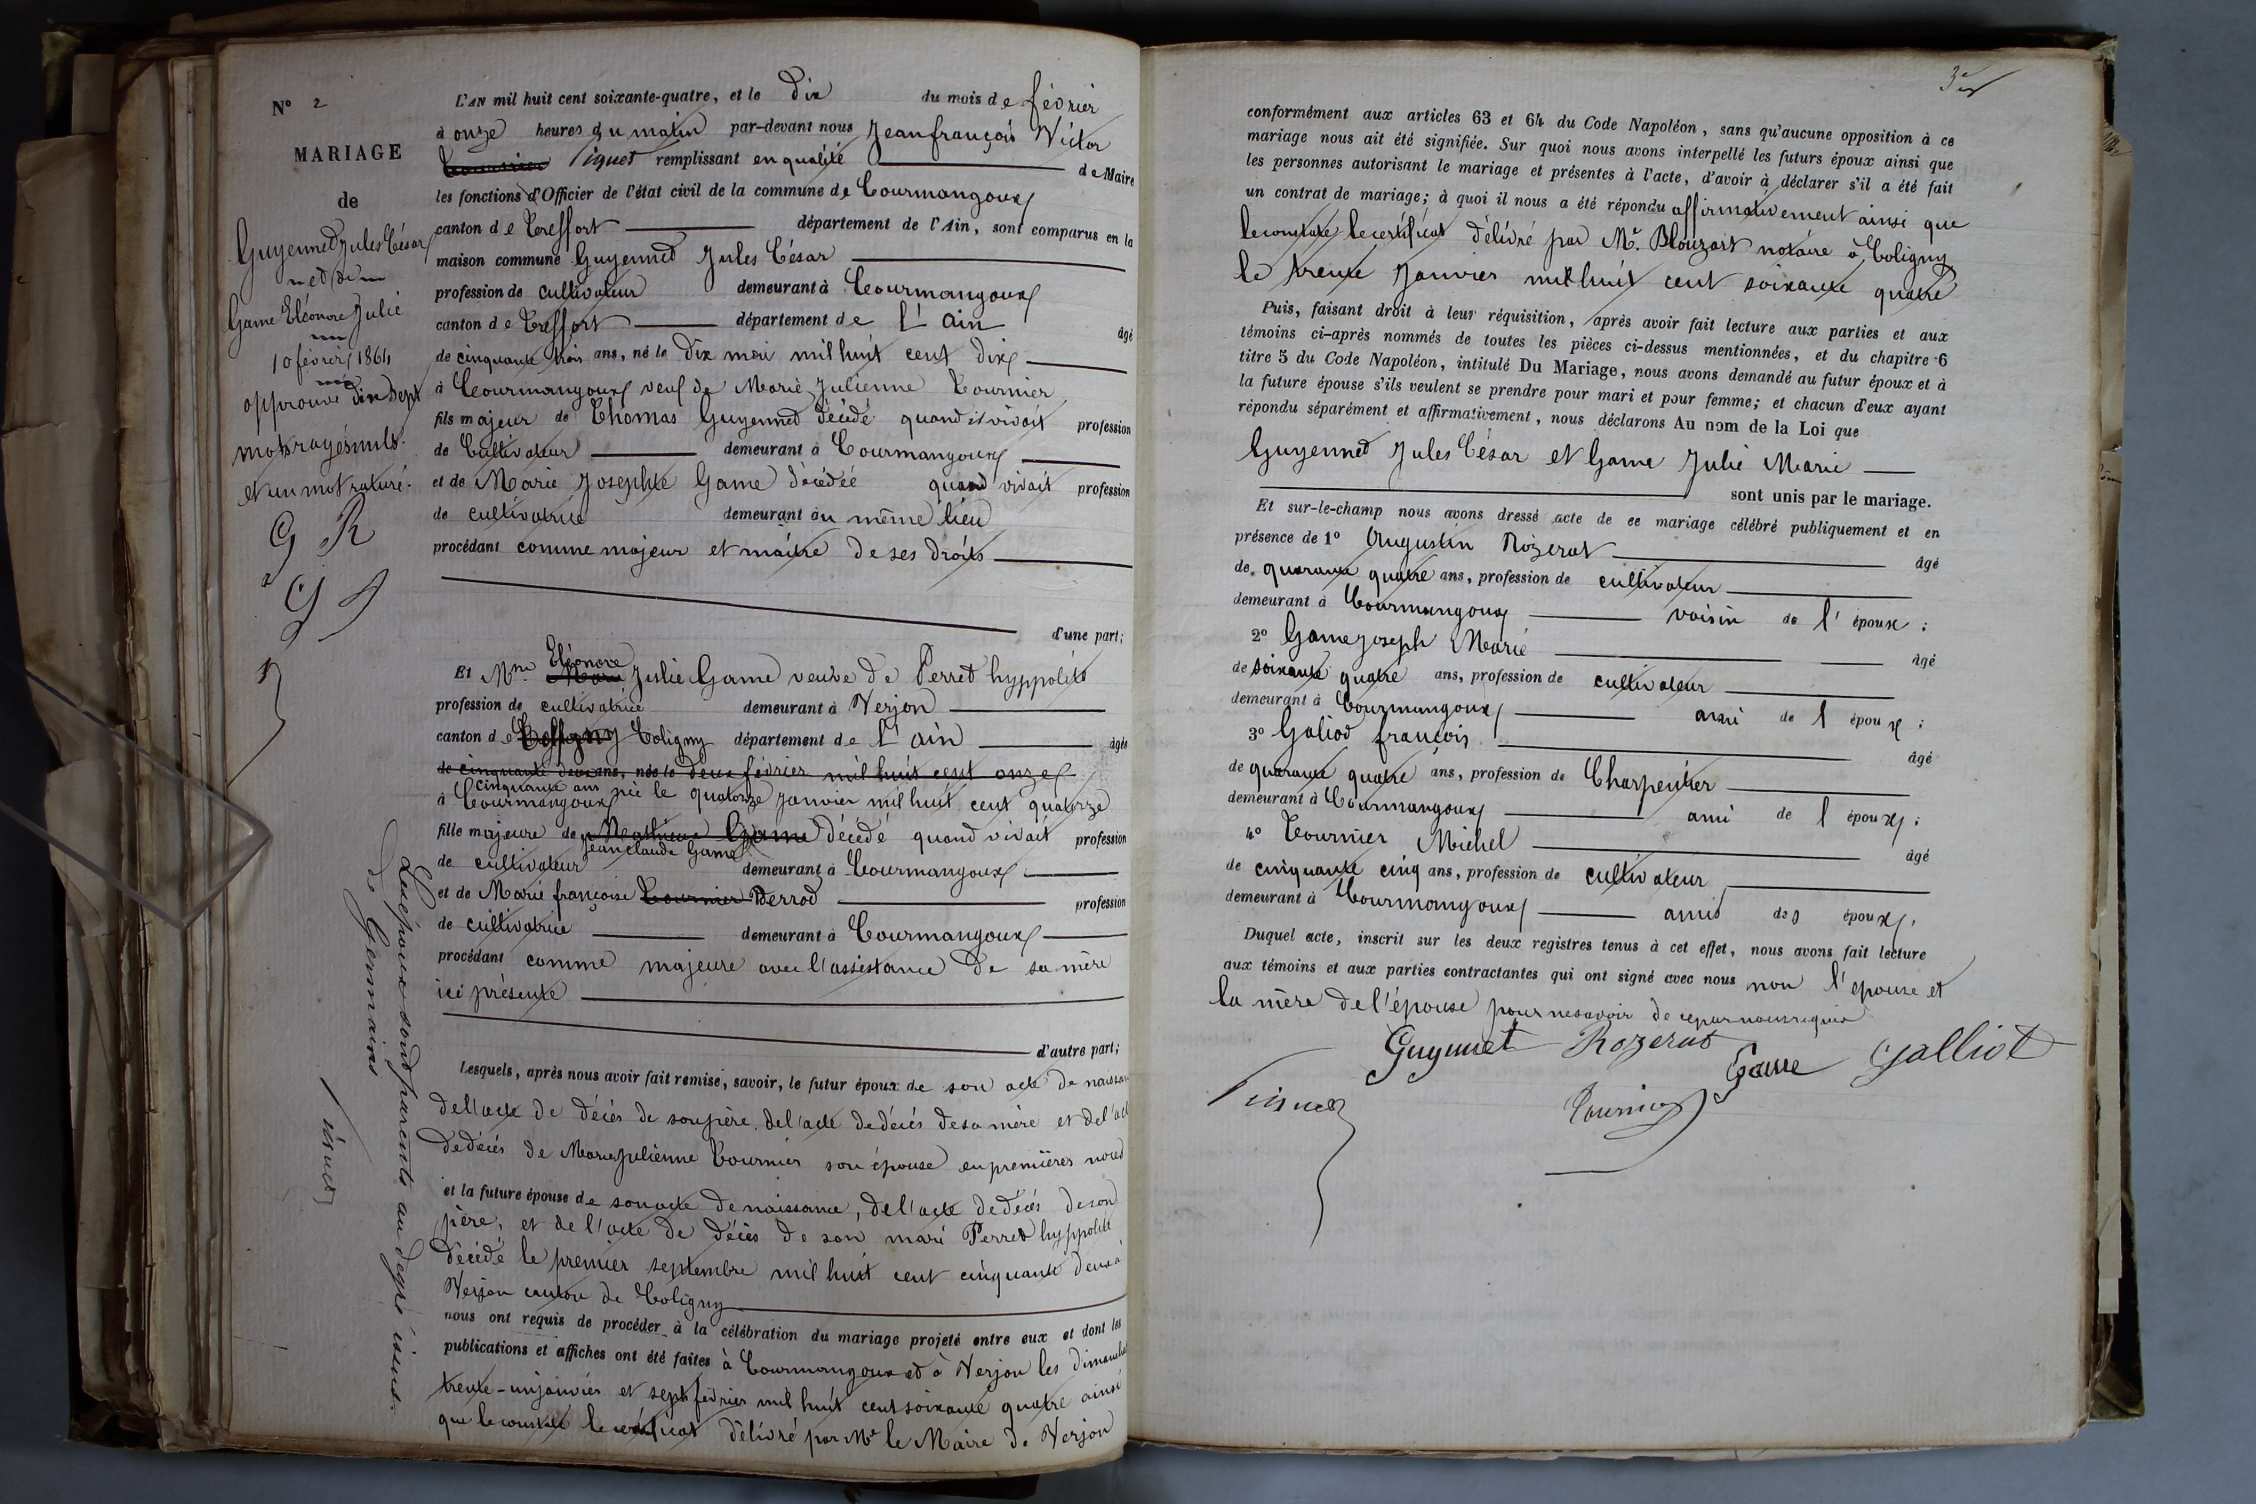 N° 2
MARIAGE
de
Guyennet Jules César
et
Game Eléonore Julie
10 février 1864
approuvé dix sept
mots rayés nuls
et un mot raturé.
G R
G
L'AN mil huit cent soixante-quatre, et le dix du mois de février
à onze heures du matin par-devant nous Jean françois Victor
Piquet remplissant en qualité de Maire
les fonctions d'Officier de l'état civil de la commune de Courmangoux
canton de Treffort département de l'Ain, sont comparus en la
maison commune Guyennet Jules César
profession de cultivateur demeurant à Courmangoux
canton de Treffort département de L'ain âgé
de cinquante trois ans, né le dix mai mil huit cent dix
à Courmangoux veuf de Marie Julienne Tournier
fils majeur de Thomas Guyennet décédé quand il vivait profession
de Cultivateur demeurant à Courmangoux
et de Marie Josephte Game décédée quand vivait profession
de cultivatrice demeurant au même lieu
procédant comme majeur et maître de ses droits
d'une part;
Eléonore
Et Mme Marie Julie Game veuve de Perret hyppolite
profession de cultivatrice demeurant à Verjon
canton de Coligny département de L'ain âgée
de cinquante deux ans, née le deux février mil huit cent onze
cinquante ans née le quatorze janvier mil huit cent quatorze
à Courmangoux
fille majeure de Mathieu Game décédé quand vivait profession
Jean claude Game
de cultivateur demeurant à Courmangoux
et de Marie françoise Tournier Perrod profession
de cultivatrice demeurant à Courmangoux
procédant comme majeure avec l'assistance de sa mère
ici présente
d'autre part;
Lesquels, après nous avoir fait remise, savoir, le futur époux de son acte de naissance
de l'acte de décès de son père, de l'acte de décès de sa mère et de l'acte
de décès de Marie Julienne Tournier son épouse en premières noces
et la future épouse de son acte de naissance, de l'acte de décès de son
père, et de l'acte de décès de son mari Perret hyppolite
décédé le premier septembre mil huit cent cinquante deux à
Verjon canton de Coligny
nous ont requis de procéder à la célébration du mariage projeté entre eux et dont les
publications et affiches ont été faites à Courmangoux et à Verjon les dimanches
trente-un janvier et sept février mil huit cent soixante quatre ainsi
que le constate le certificat délivré par Mr le Maire de Verjon
Les époux sont parents au degré issus
de Germains
3
conformément aux articles 63 et 64 du Code Napoléon, sans qu'aucune opposition à ce
mariage nous ait été signifiée. Sur quoi nous avons interpellé les futurs époux ainsi que
les personnes autorisant le mariage et présentes à l'acte, d'avoir à déclarer s'il a été fait
un contrat de mariage; à quoi il nous a été répondu affirmativement ainsi que
le constate le certificat délivré par Me. Blouzart notaire à Coligny
le trente Janvier mil huit cent soixante quatre
Puis, faisant droit à leur réquisition, après avoir fait lecture aux parties et aux
témoins ci-après nommés de toutes les pièces ci-dessus mentionnées, et du chapitre 6
titre 5 du Code Napoléon, intitulé Du Mariage, nous avons demandé au futur époux et à
la future épouse s'ils veulent se prendre pour mari et pour femme; et chacun d'eux ayant
répondu séparément et affirmativement, nous déclarons Au nom de la Loi que
Guyennet Jules César et Game Julie Marie
sont unis par le mariage.
Et sur-le-champ nous avons dressé acte de ce mariage célébré publiquement et en
présence de 1° Augustin Rozerat âgé
de quarante quatre ans, profession de cultivateur
demeurant à Courmangoux voisin de l'époux;
2° Game Joseph Marie âgé
de soixante quatre ans, profession de cultivateur
demeurant à Courmangoux ami de l'époux;
3° Galiod françois âgé
de quarante quatre ans, profession de Charpentier
demeurant à Courmangoux ami de l'époux;
4° Tournier Michel âgé
de cinquante cinq ans, profession de cultivateur
demeurant à Courmangoux ami de l'époux,
Duquel acte, inscrit sur les deux registres tenus à cet effet, nous avons fait lecture
aux témoins et aux parties contractantes qui ont signé avec nous non l'épouse et
la mère de l'épouse pour ne savoir de ce par nous requis
Guyennet Rozerat Game Galliot
Piquet Tournier